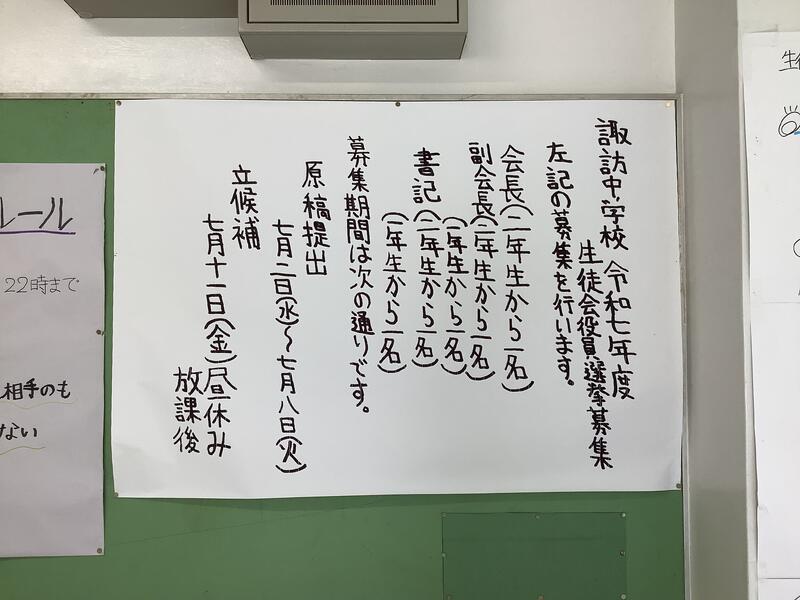 諏訪中学校 令和七年度
生徒会役員選挙募集
左記の募集を行います。
会長(二年生から一名)
副会長(二年生から一名)
(一年生から一名)
書記(二年生から一名)
(一年生から一名)
募集期間は次の通りです。
原稿提出
七月二日(水)~七月八日(火)
立候補
七月十一日(金)昼休み
放課後
ルール
22時まで
相手のも
ない